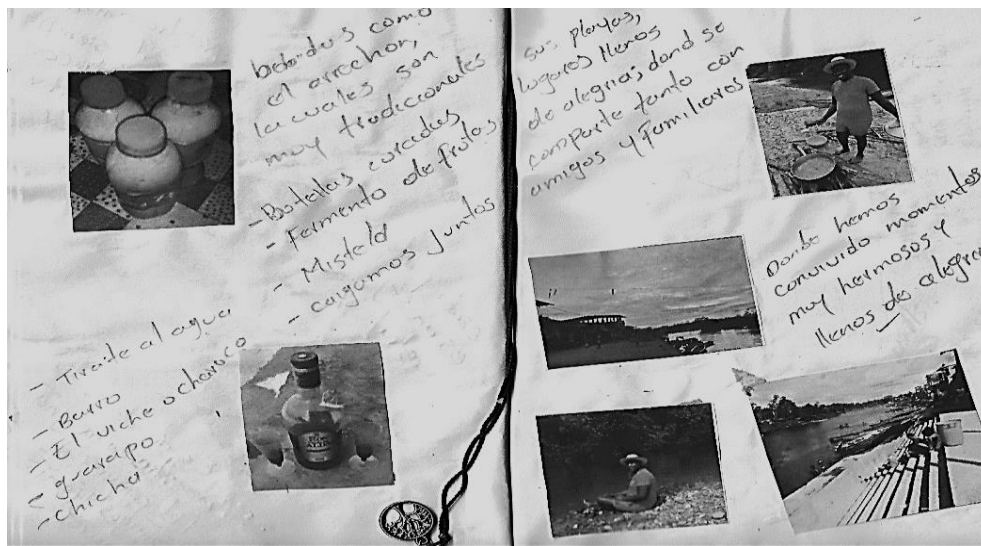 bebidas como
el arrechon,
la cuales son
muy tradicionales
- Botellas curadas
- Fermento de frutas
- Mistela
- caigamos juntos
- Tirate al agua
- Barro
- El viche o charuco
- guarapo
- chicha
sus playas,
lugares llenos
de alegrias, dond se
comparte tanto con
amigos y Familiares
Donde hemos
convivido momentos
muy hermosos y
llenos de alegria